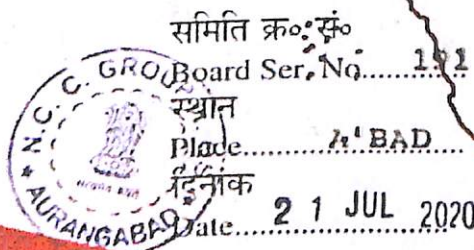 समिति क्र०सं०
Board Ser. No..........191
स्थान
Place..........A'BAD
दिनांक
Date..........2 1 JUL 2020
N.C.C. GROUP
★ AURANGABAD